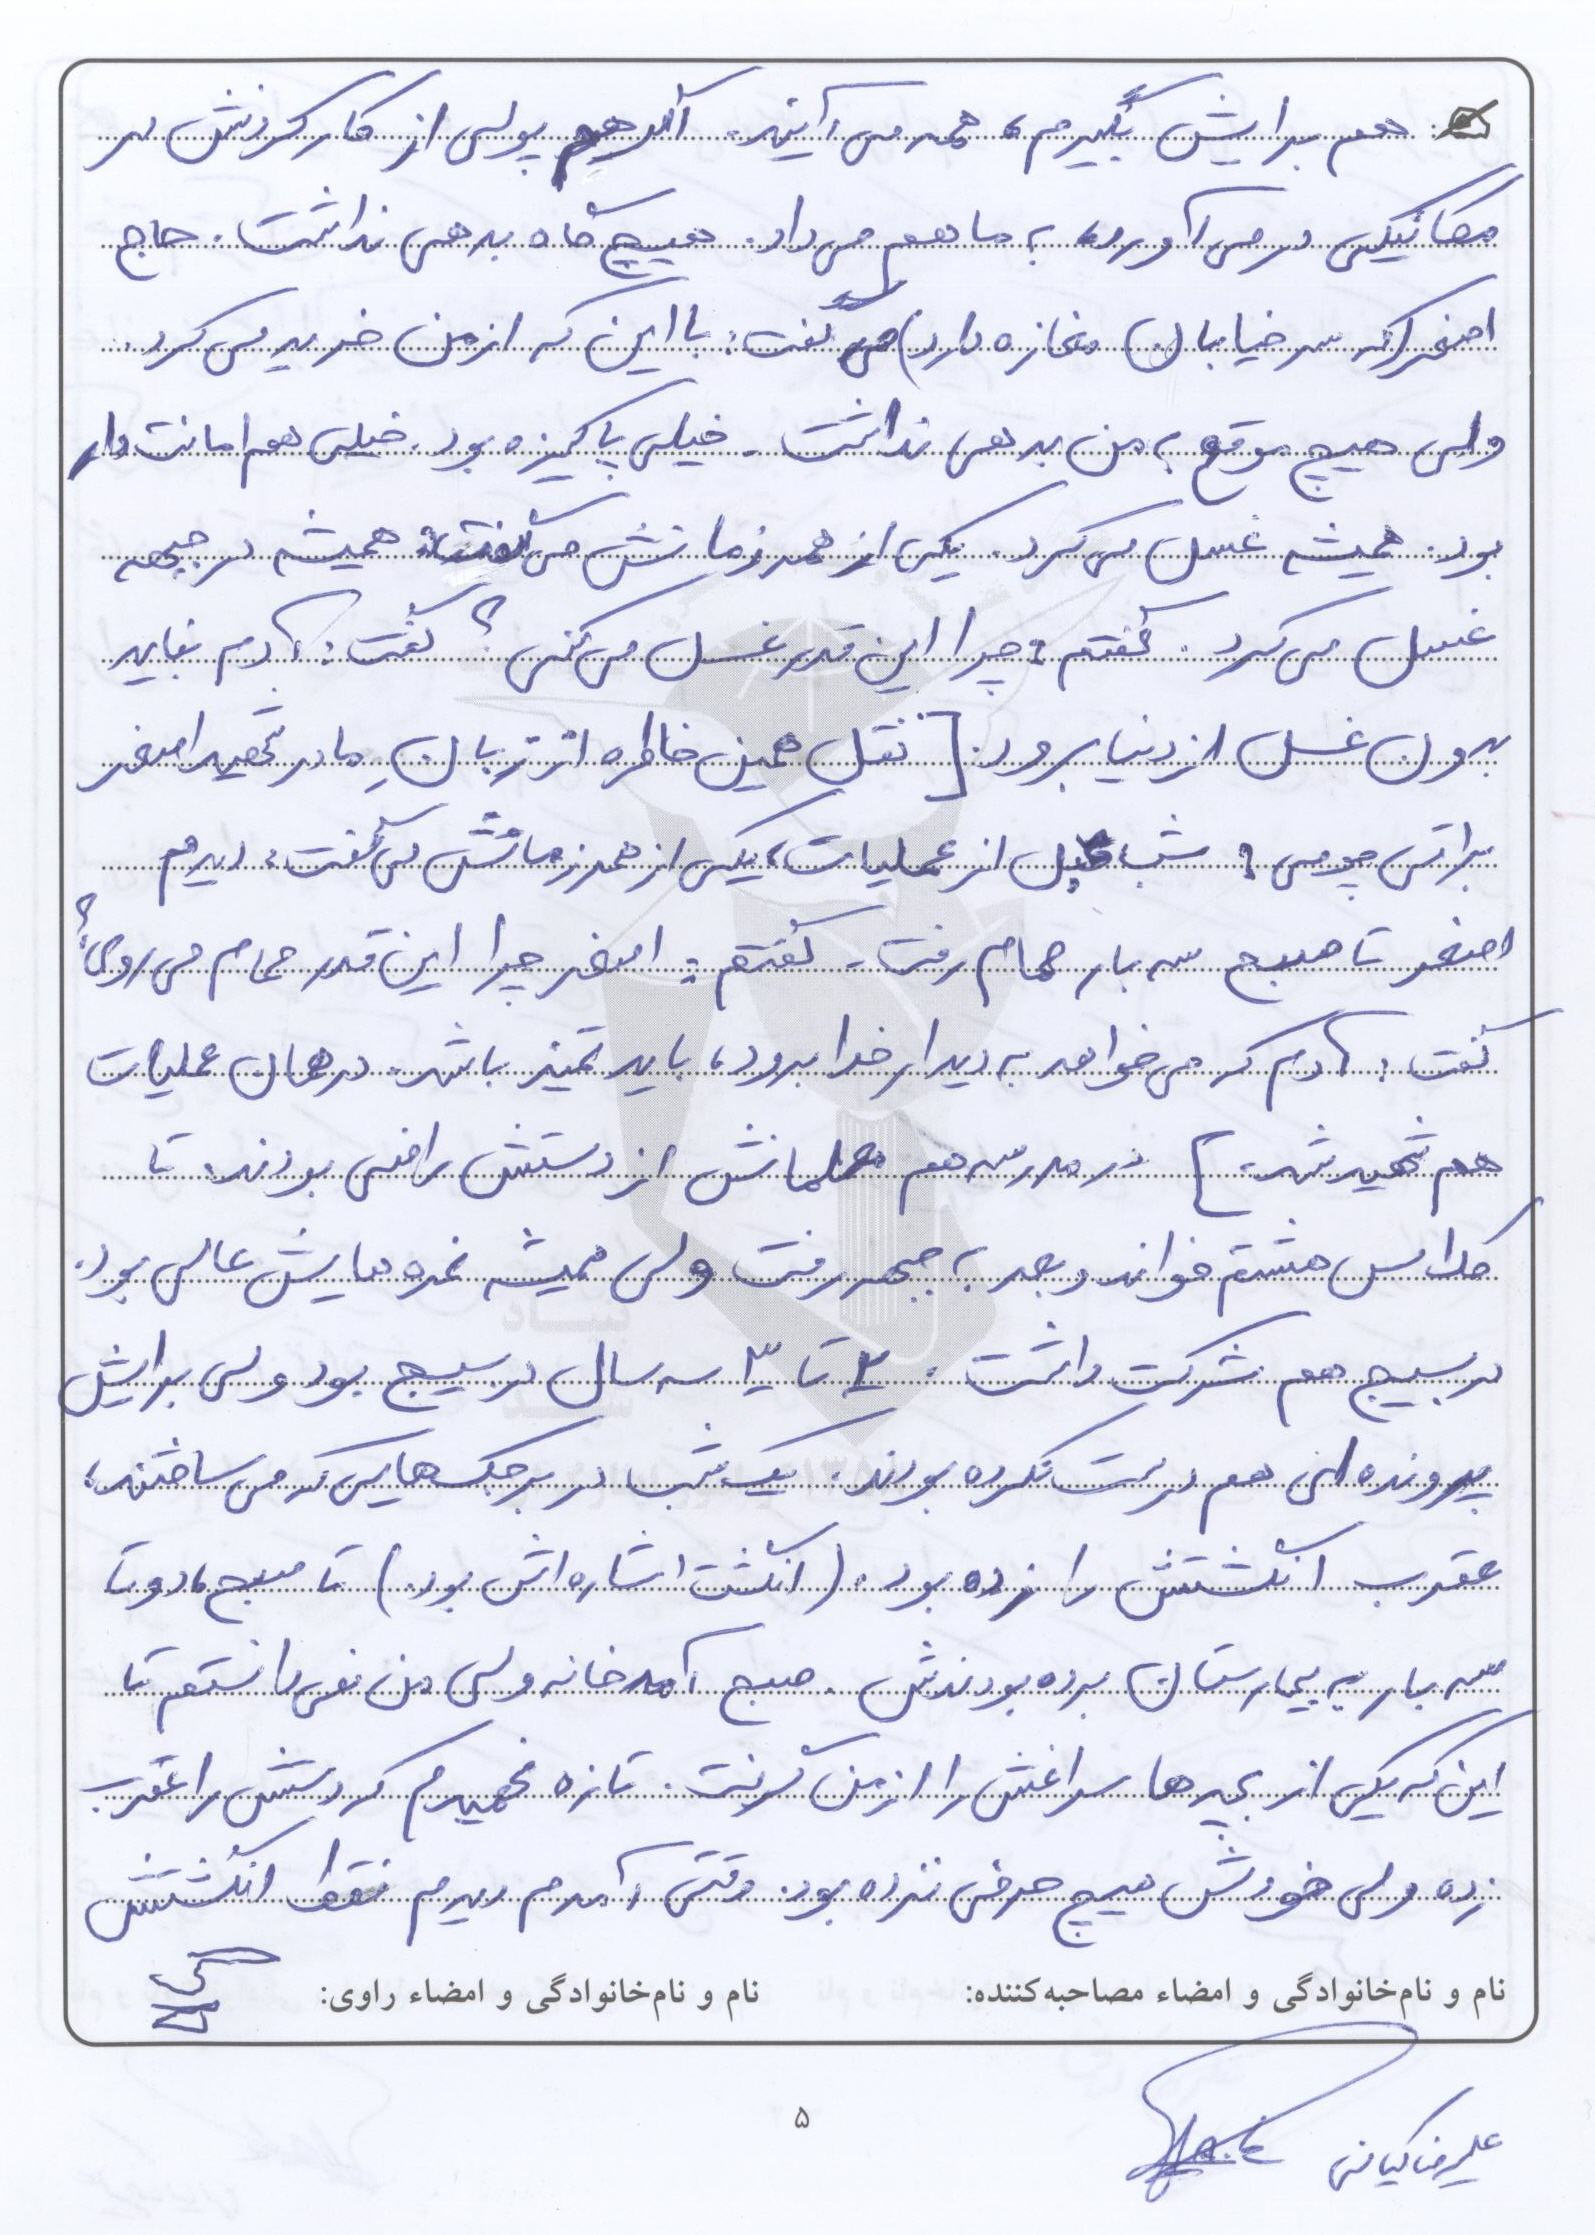 هم برایش بگیرم، همه می‌آیند. اگر هم پولی از کار کردنش در
مکانیکی در می‌آورد، به ما هم می‌داد. هیچ گاه بدهی نداشت. حاج
اصغر (که سر خیابان مغازه دارد) می‌گفت: با این که از من خرید می‌کرد
ولی هیچ موقع به من بدهی نداشت. خیلی پاکیزه بود. خیلی هم امانت دار
بود. همیشه غسل می‌کرد. یکی از همرزمانش می‌گفت: همیشه در جبهه
غسل می‌کرد. گفتم: چرا این قدر غسل می‌کنی؟ گفت: آدم نباید
بدون غسل از دنیا برود. [نقل همین خاطره از زبانِ مادر شهید اصغر
براتی چومی: شب قبل از عملیات، یکی از همرزمانش می‌گفت: دیدم
اصغر تا صبح سه بار حمام رفت. گفتم: اصغر چرا این قدر حمام می‌روی؟
گفت: آدم که می‌خواهد به دیدار خدا برود، باید تمیز باشد. در همان عملیات
هم شهید شد.] در مدرسه هم معلمانش از دستش راضی بودند. تا
کلاس هشتم خواند و بعد به جبهه رفت ولی همیشه نمره هایش عالی بود.
در بسیج هم شرکت داشت. ۲ تا ۳ سه سال در بسیج بود ولی برایش
پرونده ای هم درست نکرده بودند. یک شب در برجک هایی که می‌ساختند،
عقرب انگشتش را زده بود. (انگشت اشاره اش بود.) تا صبح، دو تا
سه بار به بیمارستان برده بودندش. صبح آمد خانه ولی من نمی‌دانستم تا
این که یکی از بچه ها سراغش را از من گرفت. تازه فهمیدم که دستش را عقرب
زده ولی خودش هیچ حرفی نزده بود. وقتی آمدم دیدم فقط انگشتش
نام و نام‌خانوادگی و امضاء مصاحبه‌کننده: نام و نام‌خانوادگی و امضاء راوی:
علیرضا کیانی
۵